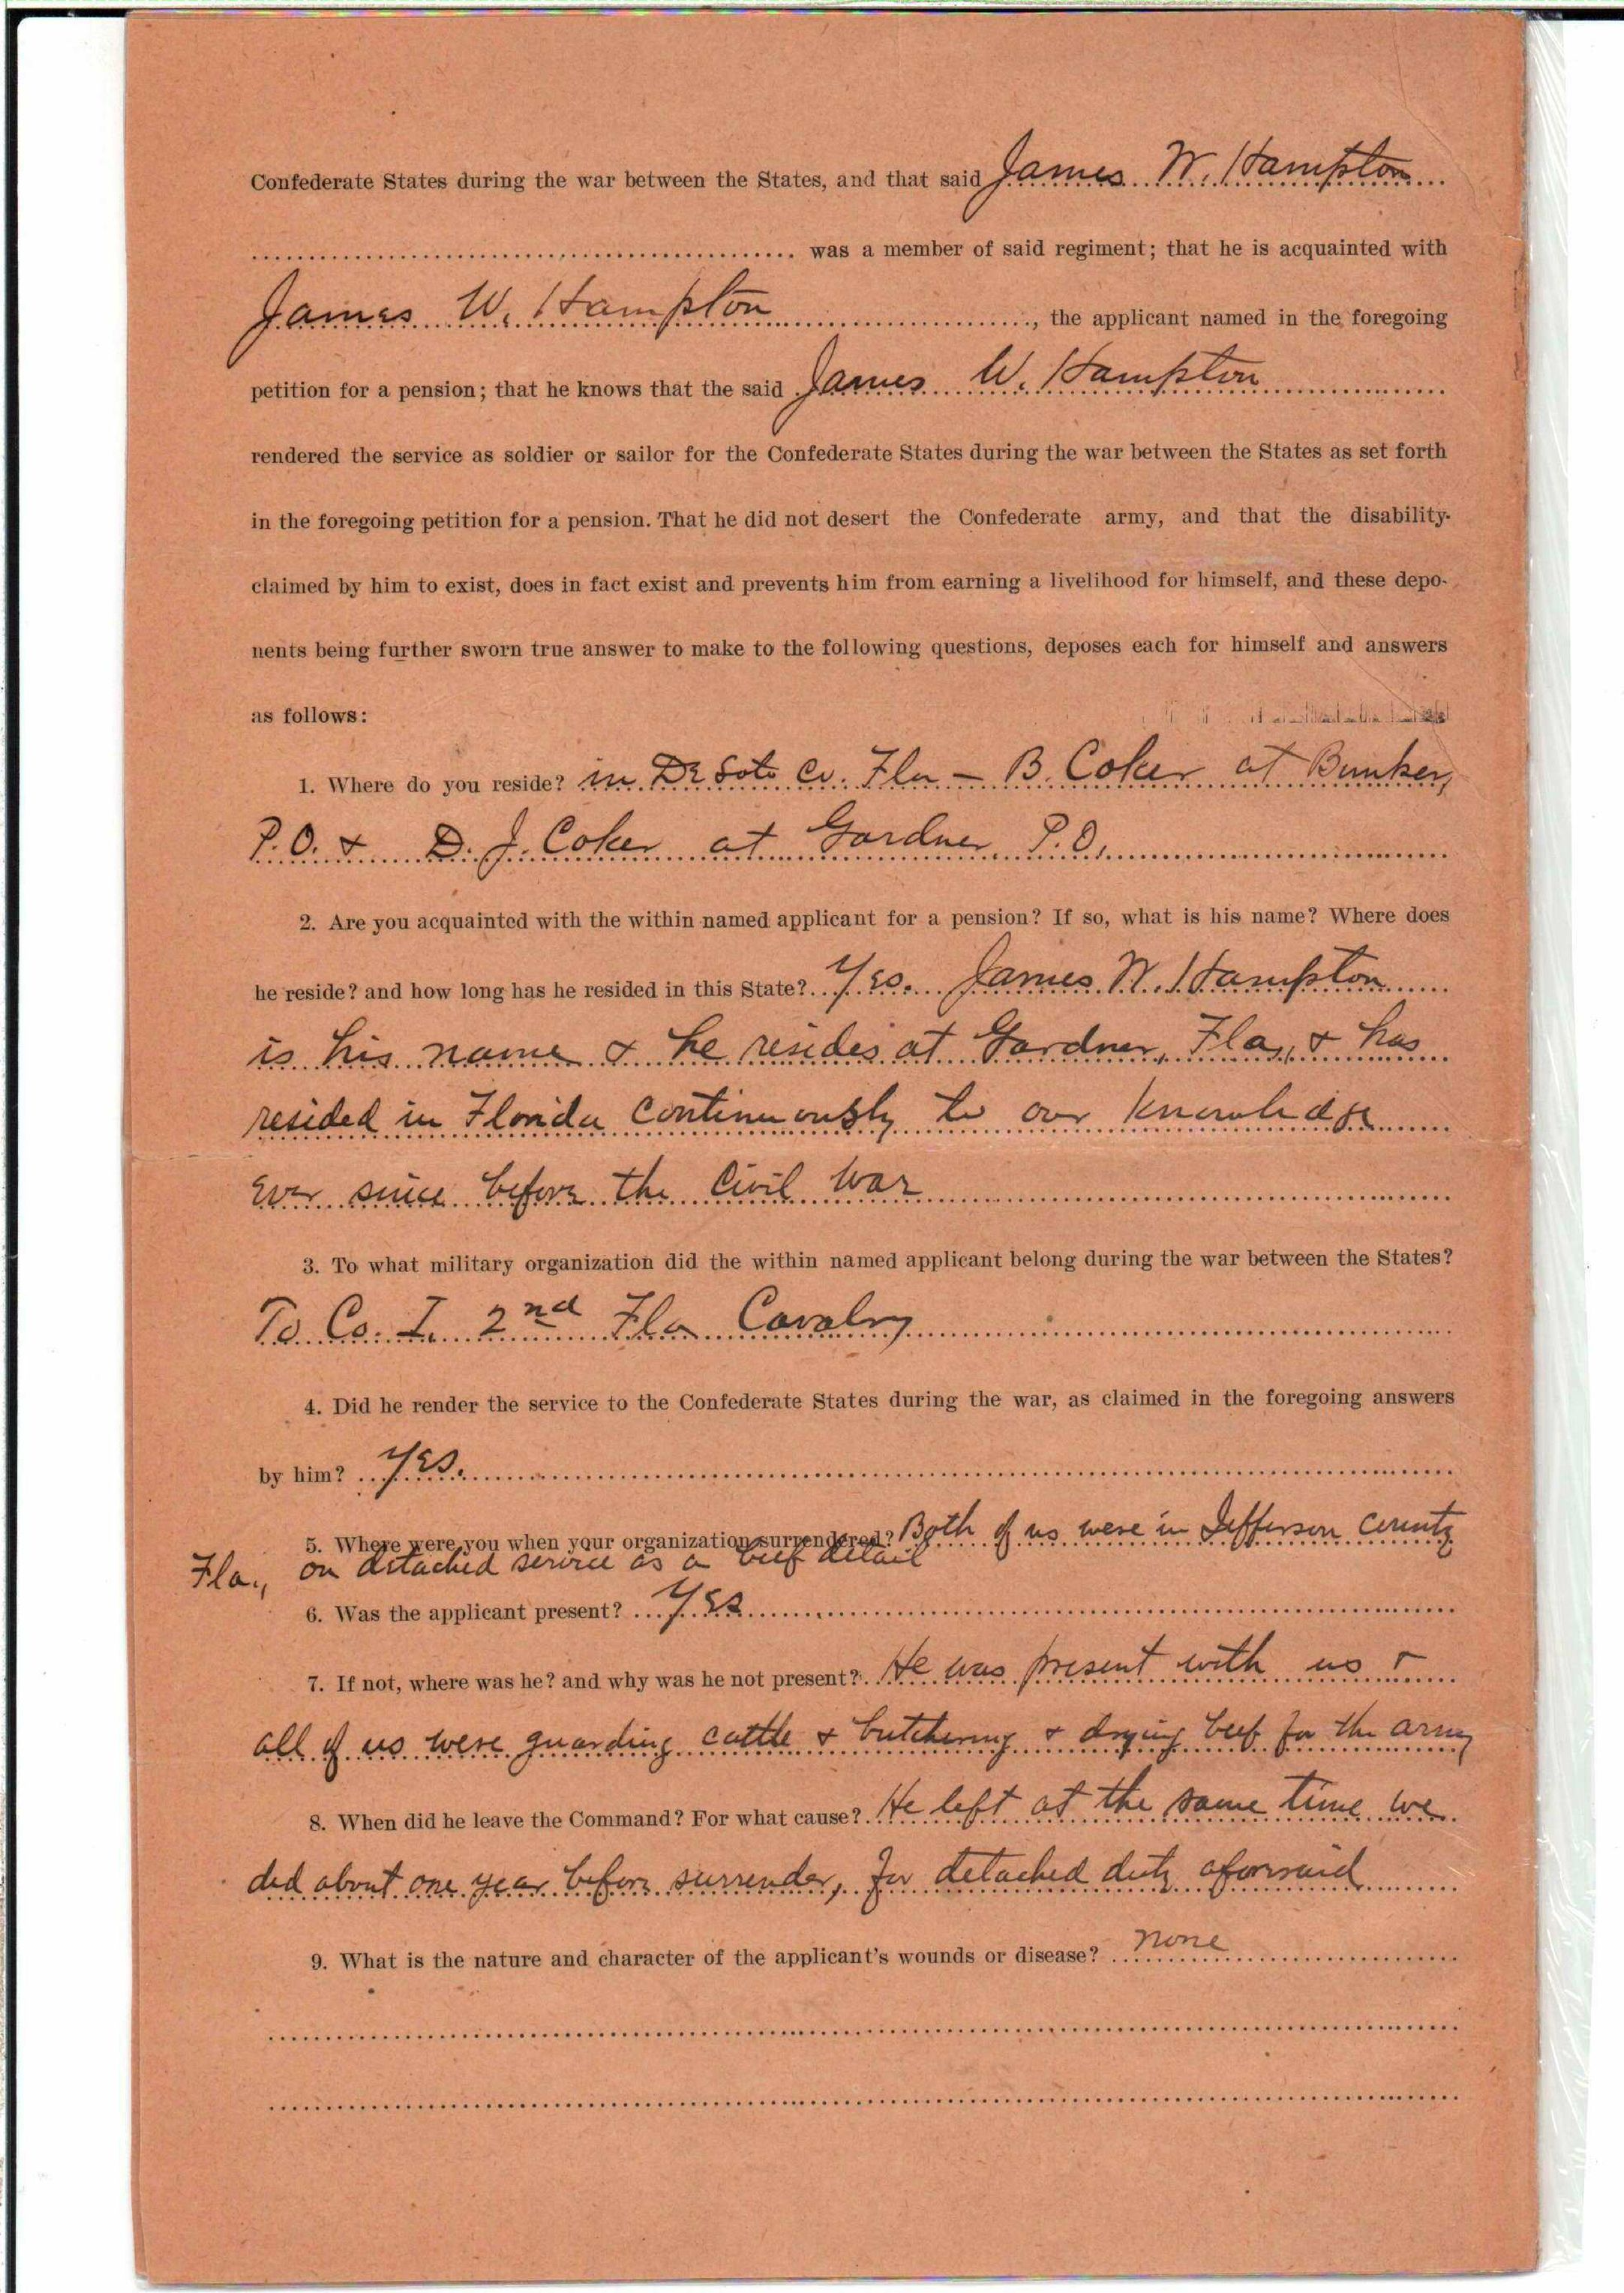 Confederate States during the war between the States, and that said James W. Hampton
was a member of said regiment; that he is acquainted with
James W. Hampton, the applicant named in the foregoing
petition for a pension; that he knows that the said James W. Hampton
rendered the service as soldier or sailor for the Confederate States during the war between the States as set forth
in the foregoing petition for a pension. That he did not desert the Confederate army, and that the disability
claimed by him to exist, does in fact exist and prevents him from earning a livelihood for himself, and these depo-
nents being further sworn true answer to make to the following questions, deposes each for himself and answers
as follows:
1. Where do you reside? in De Soto Co. Fla — B. Coker at Bunker,
P.O. & D. J. Coker at Gardner P.O.
2. Are you acquainted with the within named applicant for a pension? If so, what is his name? Where does
he reside? and how long has he resided in this State? Yes. James W. Hampton
is his name & he resides at Gardner, Fla, & has
resided in Florida continuously to our knowledge
ever since before the Civil War
3. To what military organization did the within named applicant belong during the war between the States?
To Co. I. 2nd Fla Cavalry
4. Did he render the service to the Confederate States during the war, as claimed in the foregoing answers
by him? Yes.
5. Where were you when your organization surrendered? Both of us were in Jefferson County
Fla., on detached service as a beef detail
6. Was the applicant present? Yes
7. If not, where was he? and why was he not present? He was present with us &
all of us were guarding cattle & butchering & drying beef for the army
8. When did he leave the Command? For what cause? He left at the same time we
did about one year before surrender, for detached duty aforesaid
9. What is the nature and character of the applicant's wounds or disease? none